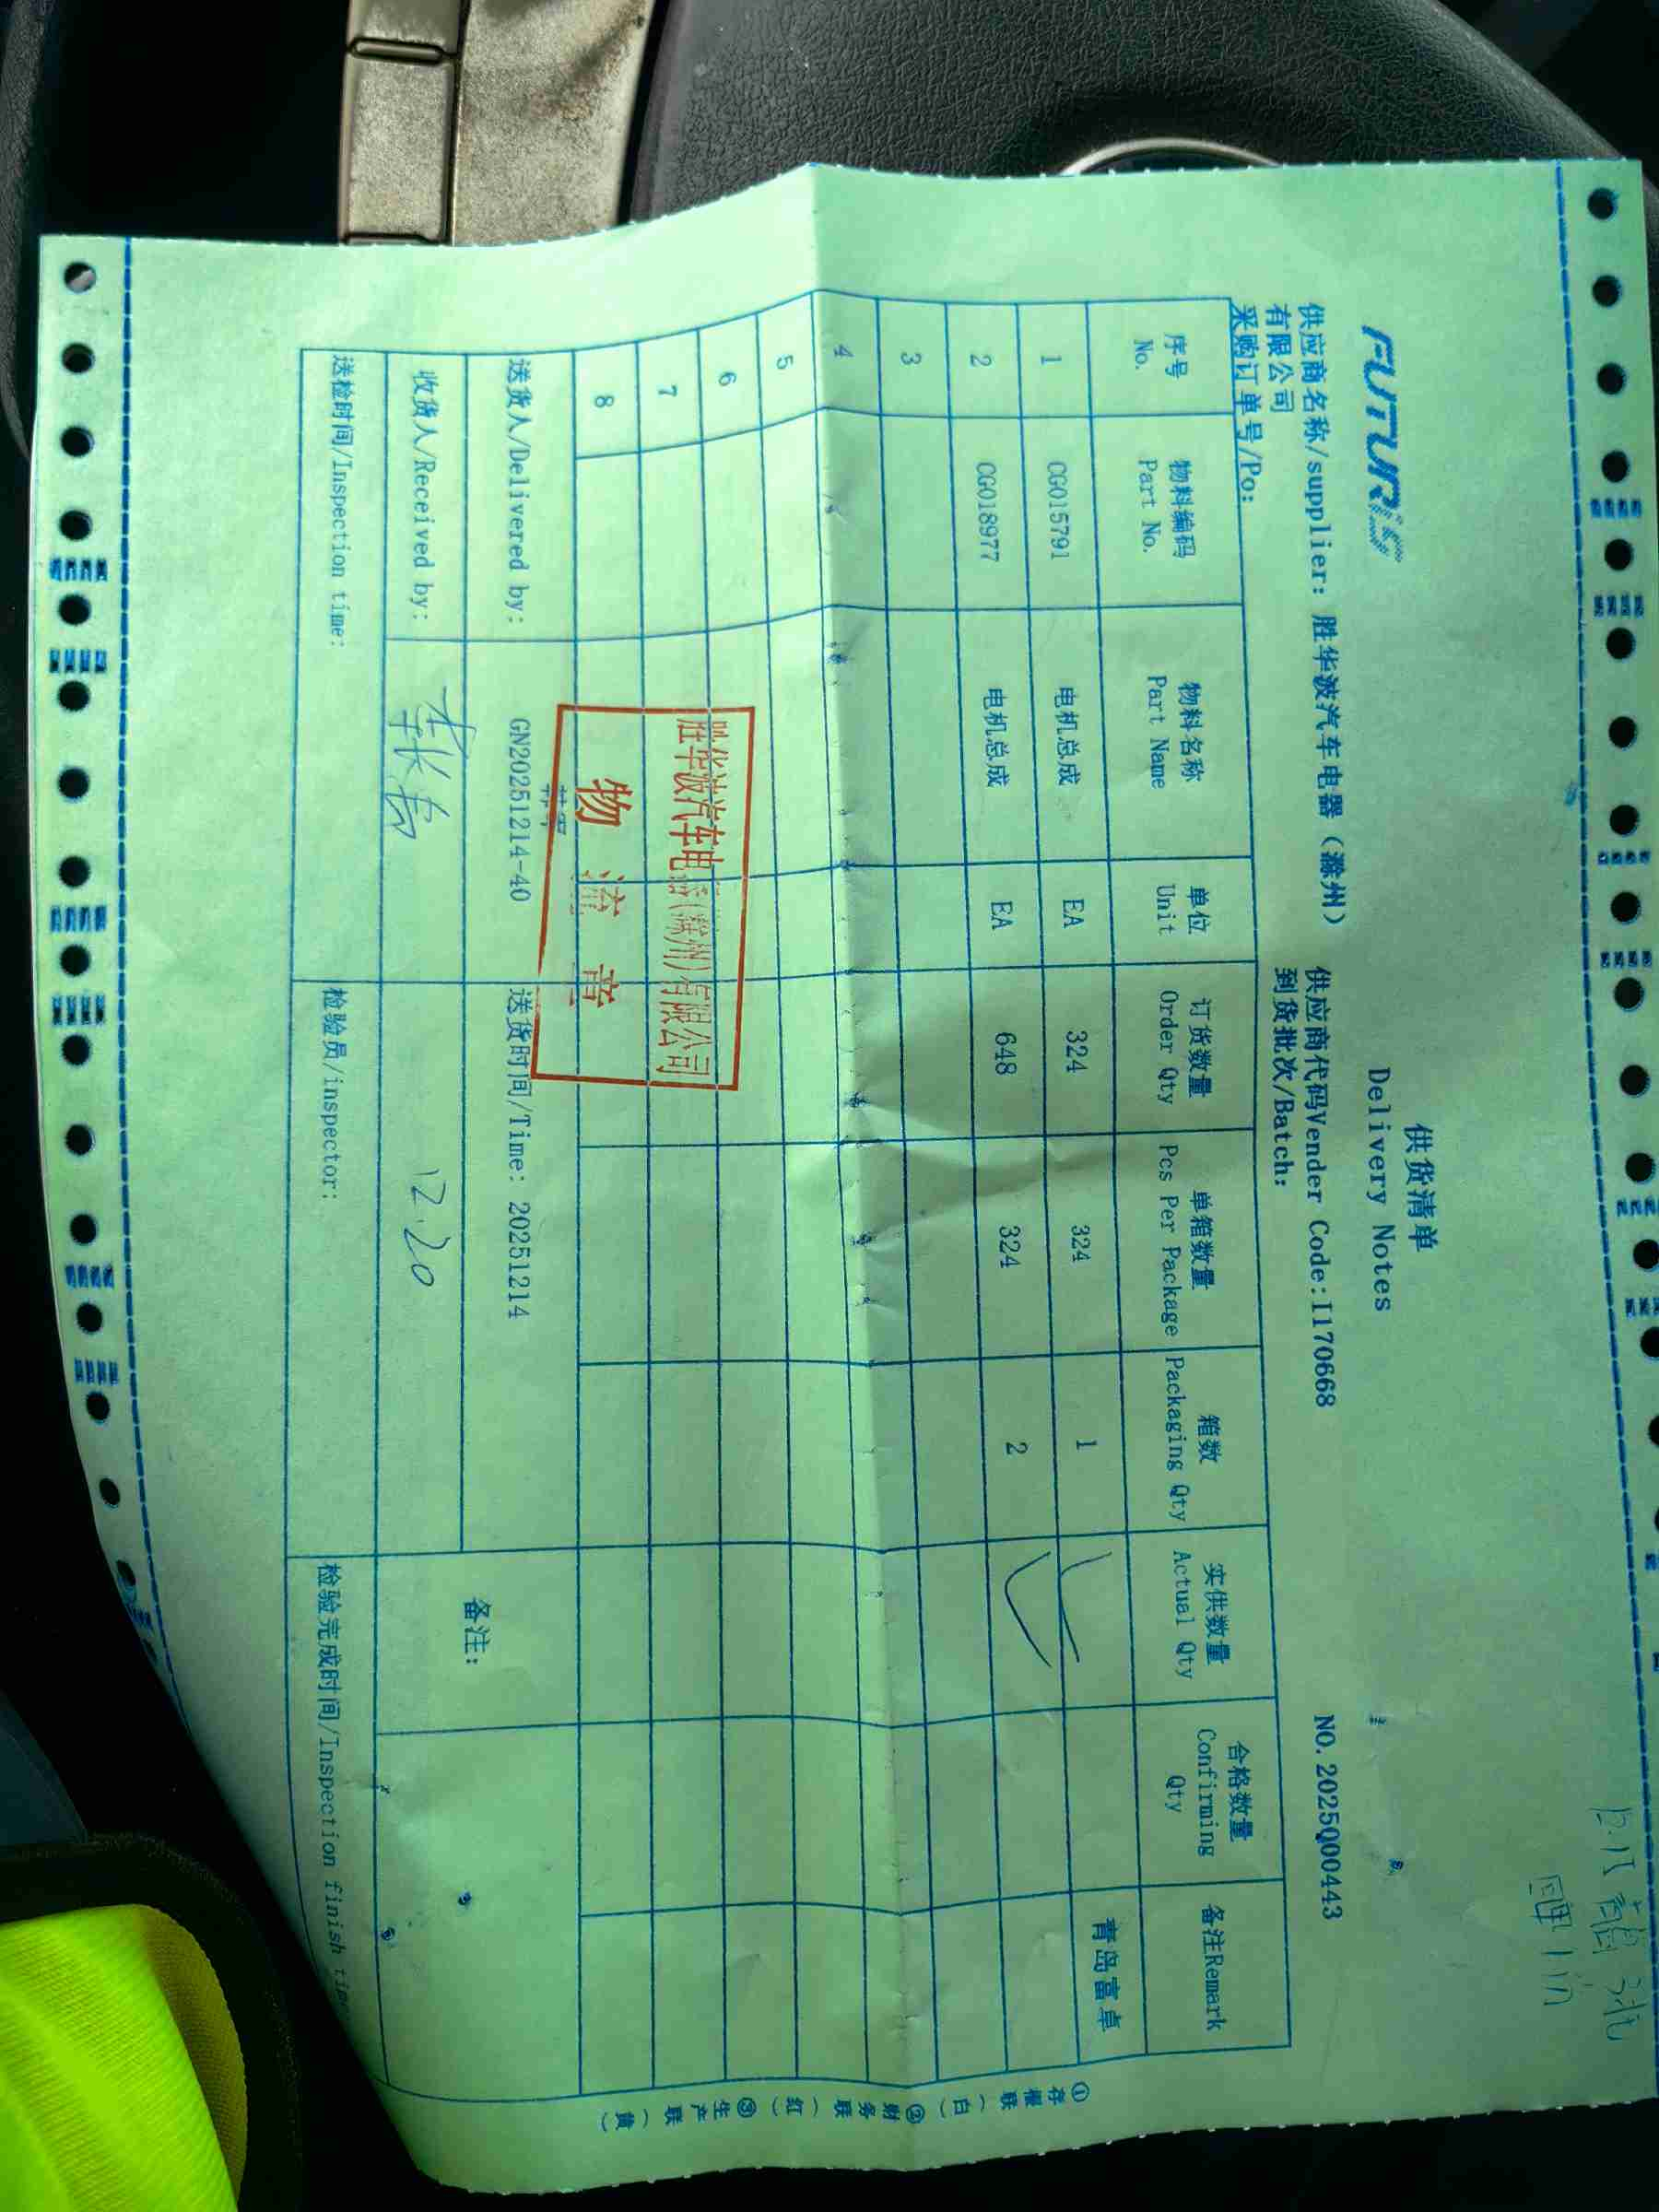 FUTURIS
供货清单
Delivery Notes
供应商名称/supplier: 胜华波汽车电器（滁州）有限公司
供应商代码Vender Code:1170668
NO. 2025Q00443
采购订单号/Po:
到货批次/Batch:
序号 No. 物料编码 Part No. 物料名称 Part Name 单位 Unit 订货数量 Order Qty 单箱数量 Pcs Per Package 箱数 Packaging Qty 实供数量 Actual Qty 合格数量 Confirming Qty 备注Remark
1 CG015791 电机总成 EA 324 324 1 青岛富卓
2 CG018977 电机总成 EA 648 324 2
3
4
5
6
7
8
胜华波汽车电器(滁州)有限公司
物流章
送货人/Delivered by: GN20251214-40 送货时间/Time: 20251214
备注:
收货人/Received by: 12.20
送检时间/Inspection time: 检验员/inspector: 检验完成时间/Inspection finish time
①存根联（白）②财务联（红）③生产联（黄）